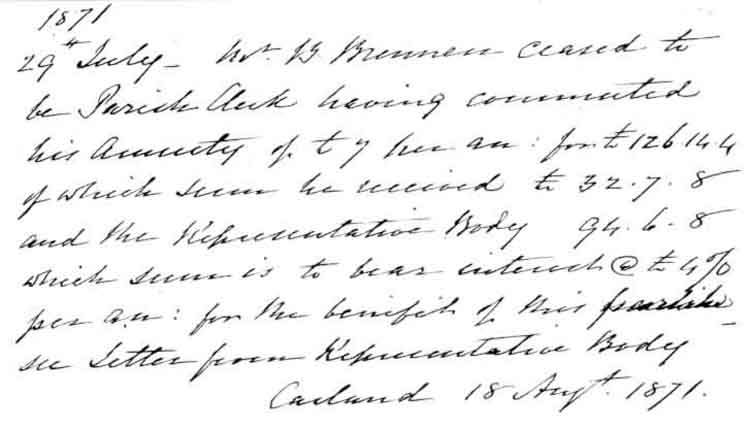 1871
29th July_ Mr. B Brennen ceased to
be Parish Clerk having commuted
his Annuity of £ 7 per an: for £ 126.14.4
of which sum he received £ 32.7.8
and the Representative Body 94.6.8
which sum is to bear interest @ £ 4%
per an: for the benefit of this parish _
see Letter from Representative Body
18 Augt. 1871.